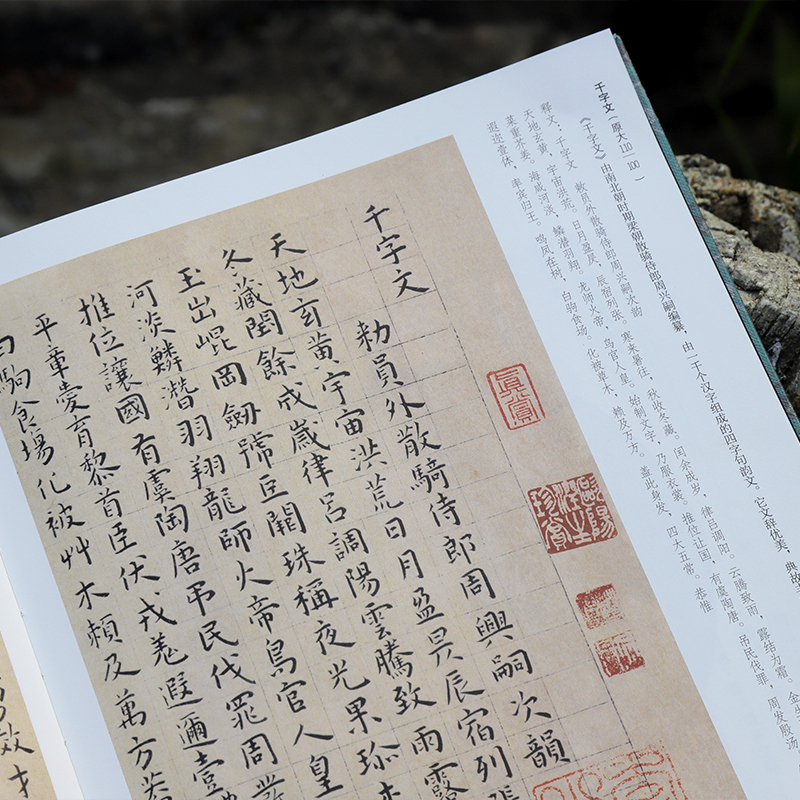 千字文（原大110|100）
《千字文》由南北朝时期梁朝散骑侍郎周兴嗣编纂，由一千个汉字组成的四字句韵文。它文辞优美，典故
释文：千字文 敕员外散骑侍郎周兴嗣次韵
天地玄黄，宇宙洪荒。日月盈昃，辰宿列张。寒来暑往，秋收冬藏。闰余成岁，律吕调阳。云腾致雨，露结为霜。金生
菜重芥姜。海咸河淡，鳞潜羽翔。龙师火帝，鸟官人皇。始制文字，乃服衣裳。推位让国，有虞陶唐。吊民伐罪，周发殷汤
遐迩壹体，率宾归王。鸣凤在树，白驹食场。化被草木，赖及万方。盖此身发，四大五常。恭惟
千字文
勑員外散騎侍郎周興嗣次韻
天地玄黃宇宙洪荒日月盈昃辰宿列張
冬藏閏餘成歲律呂調陽雲騰致雨露
玉出崐岡劔號巨闕珠稱夜光果珍李
河淡鱗潛羽翔龍師火帝鳥官人皇
推位讓國有虞陶唐弔民伐罪周發
平章愛育黎首臣伏戎羌遐邇壹體
白駒食場化被艸木賴及萬方盖
效才
真賞